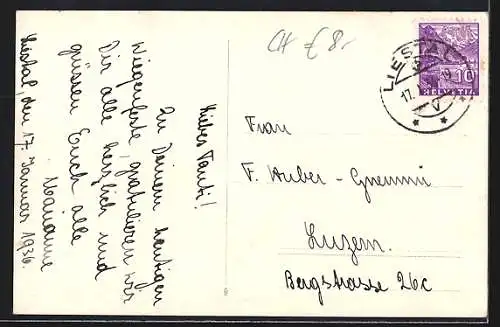 Liestal, den 17. Januar 1936.
Liebes Tanti!
Zu Deinem heutigen
Wiegenfeste, gratulieren wir
Dir alle herzlich und
grüssen Euch alle
Marianne
CH € 8.-
LIESTAL
17.
10
HELVETIA
Frau
F. Huber-
Luzern.
Bergstrasse 26c